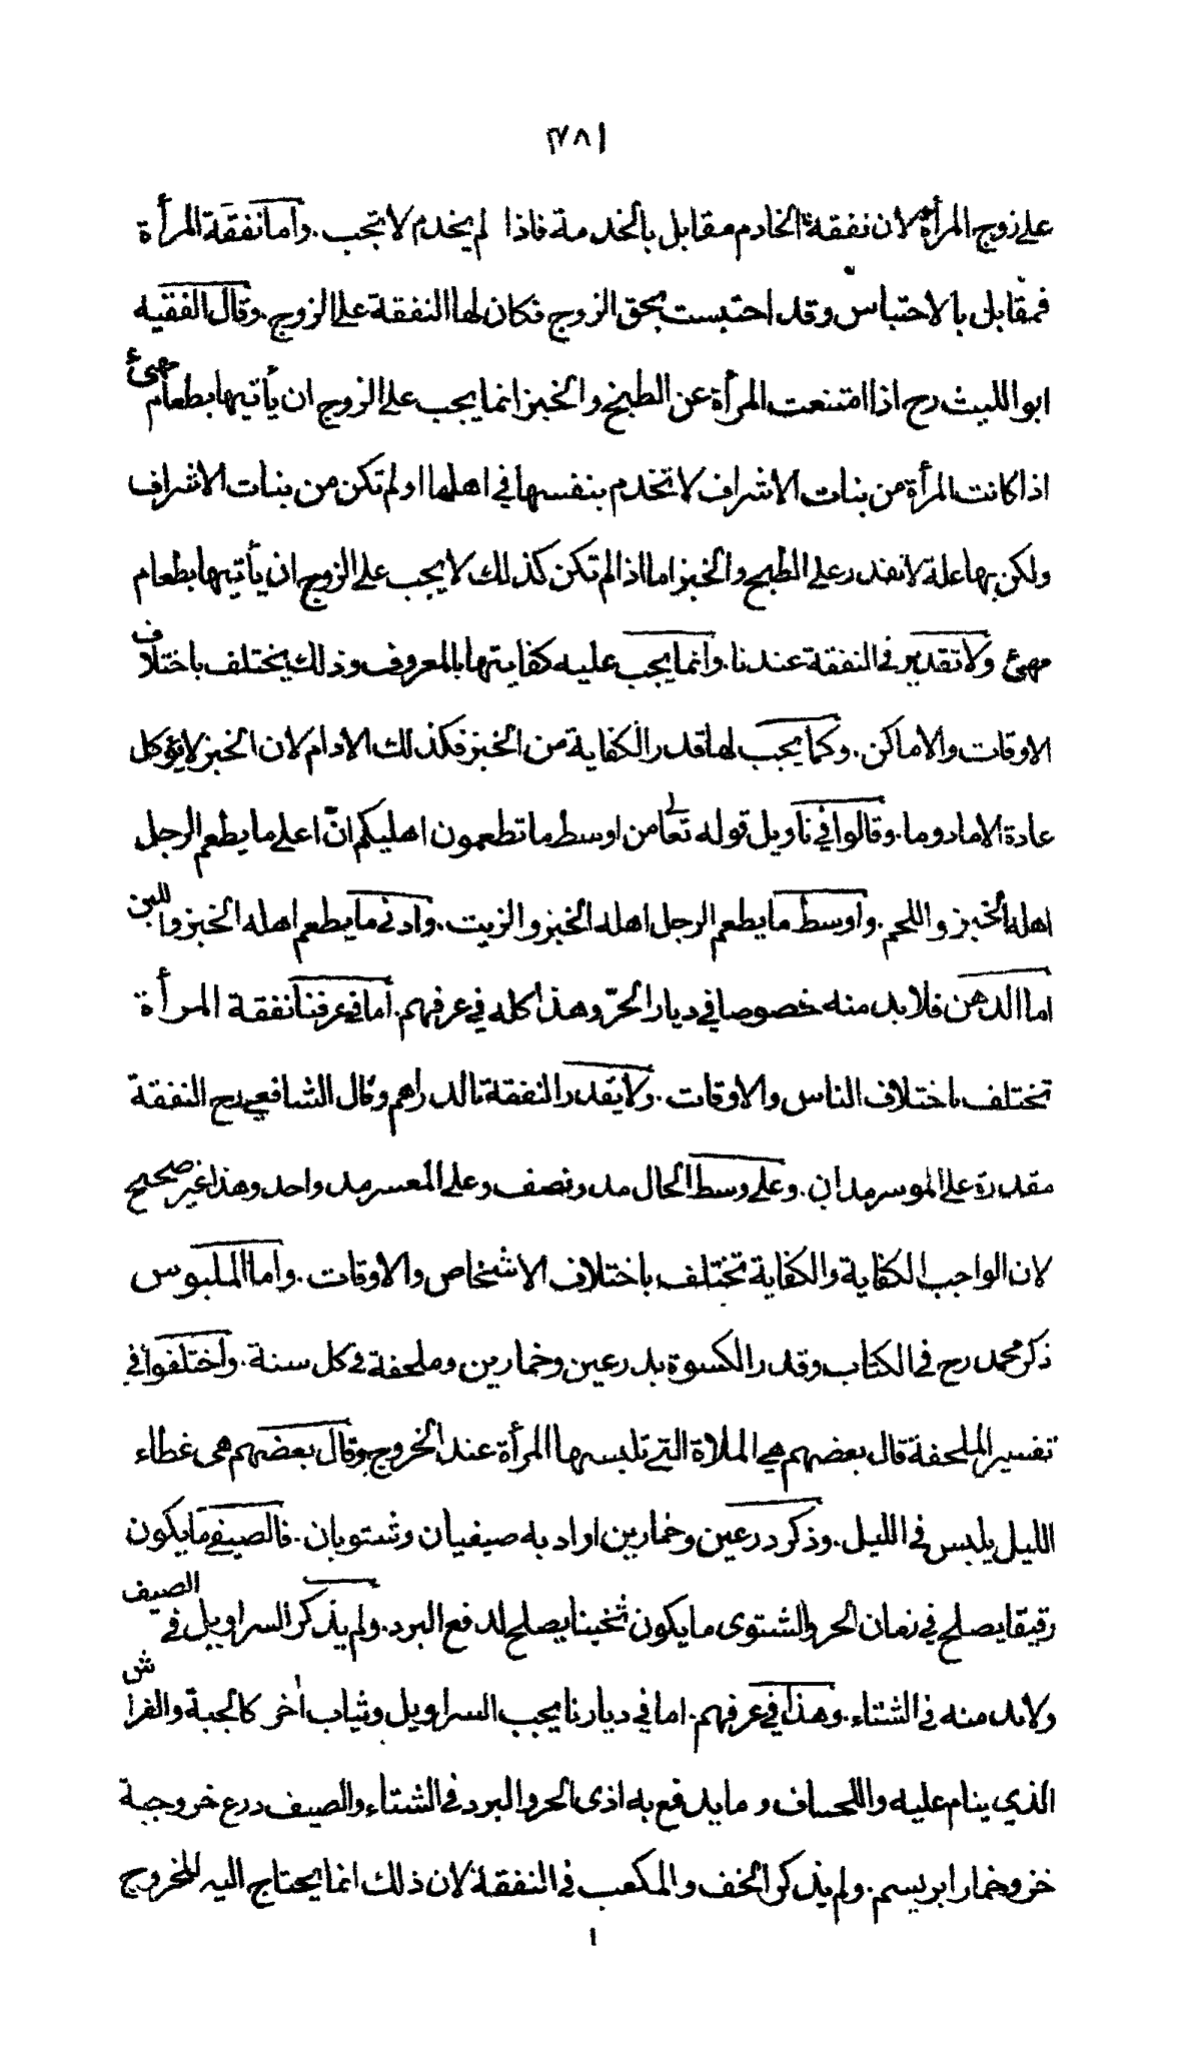 ٢٧٨١
على زوج المرأة لان نفقة الخادم مقابل بالخدمة فاذا لم يخدم لا تجب. واما نفقة المرأة
فمقابل بالاحتباس وقد احتبست بحق الزوج فكان لها النفقة على الزوج. وقال الفقيه
ابو الليث رح اذا امتنعت المرأة عن الطبخ والخبز انما يجب على الزوج ان يأتيها بطعام مهئ
اذا كانت المرأة من بنات الاشراف لا تخدم بنفسها في اهلها او لم تكن من بنات الاشراف
ولكن بها علة لا تقدر على الطبخ والخبز اما اذا لم تكن كذلك لا يجب على الزوج ان يأتيها بطعام
مهئ ولا تقدير في النفقة عندنا. وانما يجب عليه كفايتها بالمعروف وذلك يختلف باختلاف
الاوقات والاماكن. وكما يجب لها قدر الكفاية من الخبز فكذلك الادام لان الخبز لا يؤكل
عادة الا مادوما. وقالوا في تاويل قوله تعالى من اوسط ما تطعمون اهليكم انّ اعلى ما يطعم الرجل
اهله الخبز واللحم. واوسط ما يطعم الرجل اهله الخبز والزيت. وادنى ما يطعم اهله الخبز واللبن
اما الدهن فلا بد منه خصوصا في ديار الحرّ وهذا كله في عرفهم. اما في عرفنا نفقة المرأة
تختلف باختلاف الناس والاوقات. ولا يقدر النفقة بالدراهم وقال الشافعي رح النفقة
مقدرة على الموسر مدان. وعلى وسط الحال مد ونصف وعلى المعسر مد واحد وهذا غير صحيح
لان الواجب الكفاية والكفاية تختلف باختلاف الاشخاص والاوقات. واما الملبوس
ذكر محمد رح في الكتاب وقدر الكسوة بدرعين وخمارين وملحفة في كل سنة. واختلفوا في
تفسير الملحفة قال بعضهم هي الملاة التي تلبسها المرأة عند الخروج وقال بعضهم هى غطاء
الليل يلبس في الليل. وذكر درعين وخمارين اراد به صيفيان وشتويان. فالصيفي ما يكون
رقيقا يصلح في زمان الحر والشتوى ما يكون ثخينا يصلح لدفع البرد. ولم يذكر السراويل في الصيف
ولا بد منه في الشتاء. وهذا في عرفهم. اما في ديارنا يجب السراويل وثياب اخر كالجبة والفراش
الذي ينام عليه واللحاف وما يدفع به اذى الحر والبرد في الشتاء والصيف درع خز وجبة
خز وخمار ابريسم. ولم يذكر الخف والمكعب في النفقة لان ذلك انما يحتاج اليه للخروج
١